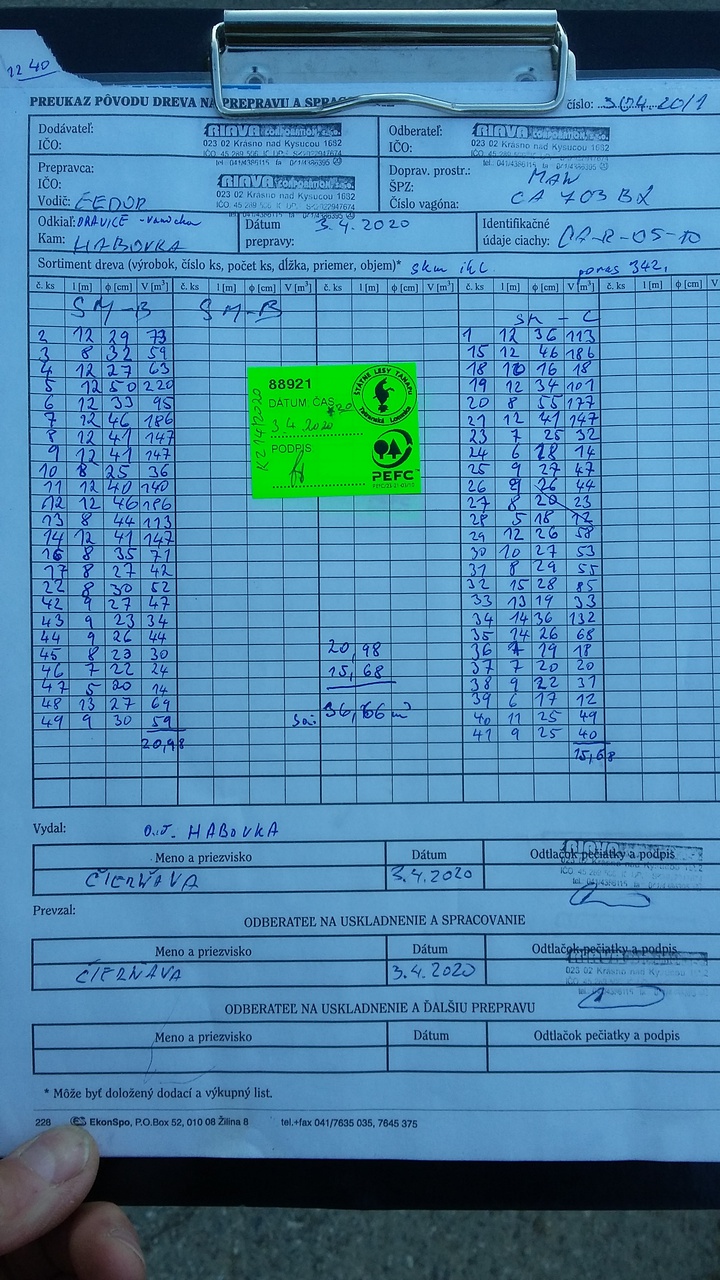 12 40
PREUKAZ PÔVODU DREVA NA PREPRAVU A SPRAC
číslo: 3.04.20/1
Dodávateľ: RIAVA CORPORATION s.r.o.
IČO: 023 02 Krásno nad Kysucou 1682
Odberateľ: RIAVA CORPORATION s.r.o.
IČO: 023 02 Krásno nad Kysucou 1682
Prepravca: RIAVA CORPORATION s.r.o.
IČO: 023 02 Krásno nad Kysucou 1682
Vodič: FEDOR
Doprav. prostr.: MAN
ŠPZ: CA 703 BX
Číslo vagóna:
Odkiaľ: ORAVICE
Kam: HABOVKA
Dátum prepravy: 3.4.2020
Identifikačné údaje ciachy: CA-R-05-TO
Sortiment dreva (výrobok, číslo ks, počet ks, dĺžka, priemer, objem)* poras 342,
č. ks l [m] ϕ [cm] V [m³] č. ks l [m] ϕ [cm] V [m³] č. ks l [m] ϕ [cm] V [m³] č. ks l [m] ϕ [cm] V [m³] č. ks l [m] ϕ [cm] V
SM-B SM-B
SM - C
2 12 29 73
3 8 32 59
4 12 27 63
5 12 50 220
6 12 33 95
7 12 46 186
8 12 41 147
9 12 41 147
10 8 25 36
11 12 40 140
12 12 46 186
13 8 44 113
14 12 41 147
16 8 35 71
17 8 27 42
22 8 30 52
42 9 27 47
43 9 23 34
44 9 26 44
45 8 23 30
46 7 22 24
47 5 20 14
48 13 27 69
49 9 30 59
20,98
88921
DÁTUM ČAS
3.4.2020
PODPIS
KZ 14/2020
ŠTÁTNE LESY TANAPU
Tatranská Lomnica
PEFC
20,98
15,68
36,66 m³
1 12 36 113
15 12 46 186
18 10 16 18
19 12 34 101
20 8 55 177
21 12 41 147
23 7 25 32
24 6 18 14
25 9 27 47
26 9 26 44
27 8 20 23
28 5 18 12
29 12 26 58
30 10 27 53
31 8 29 55
32 15 28 85
33 13 19 33
34 14 36 132
35 14 26 68
36 7 19 18
37 7 20 20
38 9 22 31
39 6 17 12
40 11 25 49
41 9 25 40
15,68
Vydal: O.J. HABOVKA
Meno a priezvisko Dátum Odtlačok pečiatky a podpis
ČIERŇAVA 3.4.2020
Prevzal:
ODBERATEĽ NA USKLADNENIE A SPRACOVANIE
Meno a priezvisko Dátum Odtlačok pečiatky a podpis
ČIERŇAVA 3.4.2020
023 02 Krásno nad Kysucou 1682
ODBERATEĽ NA USKLADNENIE A ĎALŠIU PREPRAVU
Meno a priezvisko Dátum Odtlačok pečiatky a podpis
* Môže byť doložený dodací a výkupný list.
228 EkonSpo, P.O.Box 52, 010 08 Žilina 8 tel.+fax 041/7635 035, 7645 375